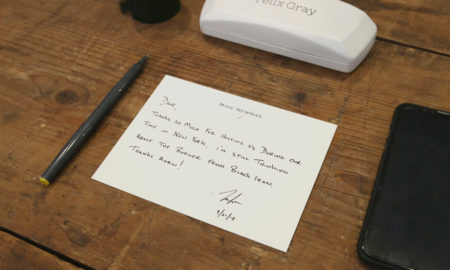 Felix Gray
MIKE NEWMAN
Dave,
THANKS SO MUCH FOR HOSTING US DURING OUR
TIME IN NEW YORK. I'M STILL THINKING
ABOUT THE BURGER FROM BLACK IRON.
THANKS AGAIN!